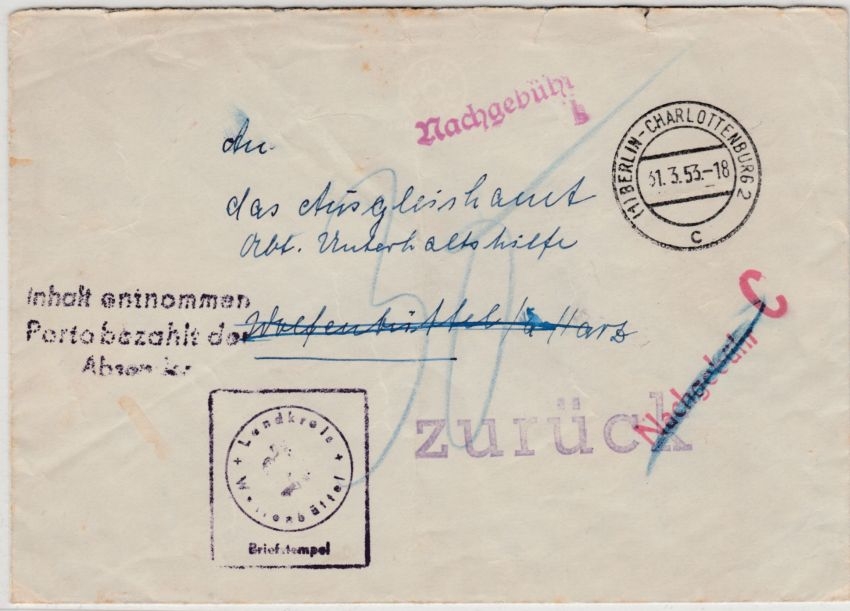 Nachgebühr
(1) BERLIN-CHARLOTTENBURG 2
31.3.53.-18
c
An
das Ausgleishamt
Abt. Unterhaltshilfe
Wolfenbüttel / a Harz
50
Inhalt entnommen
Porto bezahlt der
Absender
C
Nachgebühr
zurück
+ Landkreis +
Wolfenbüttel
Briefstempel